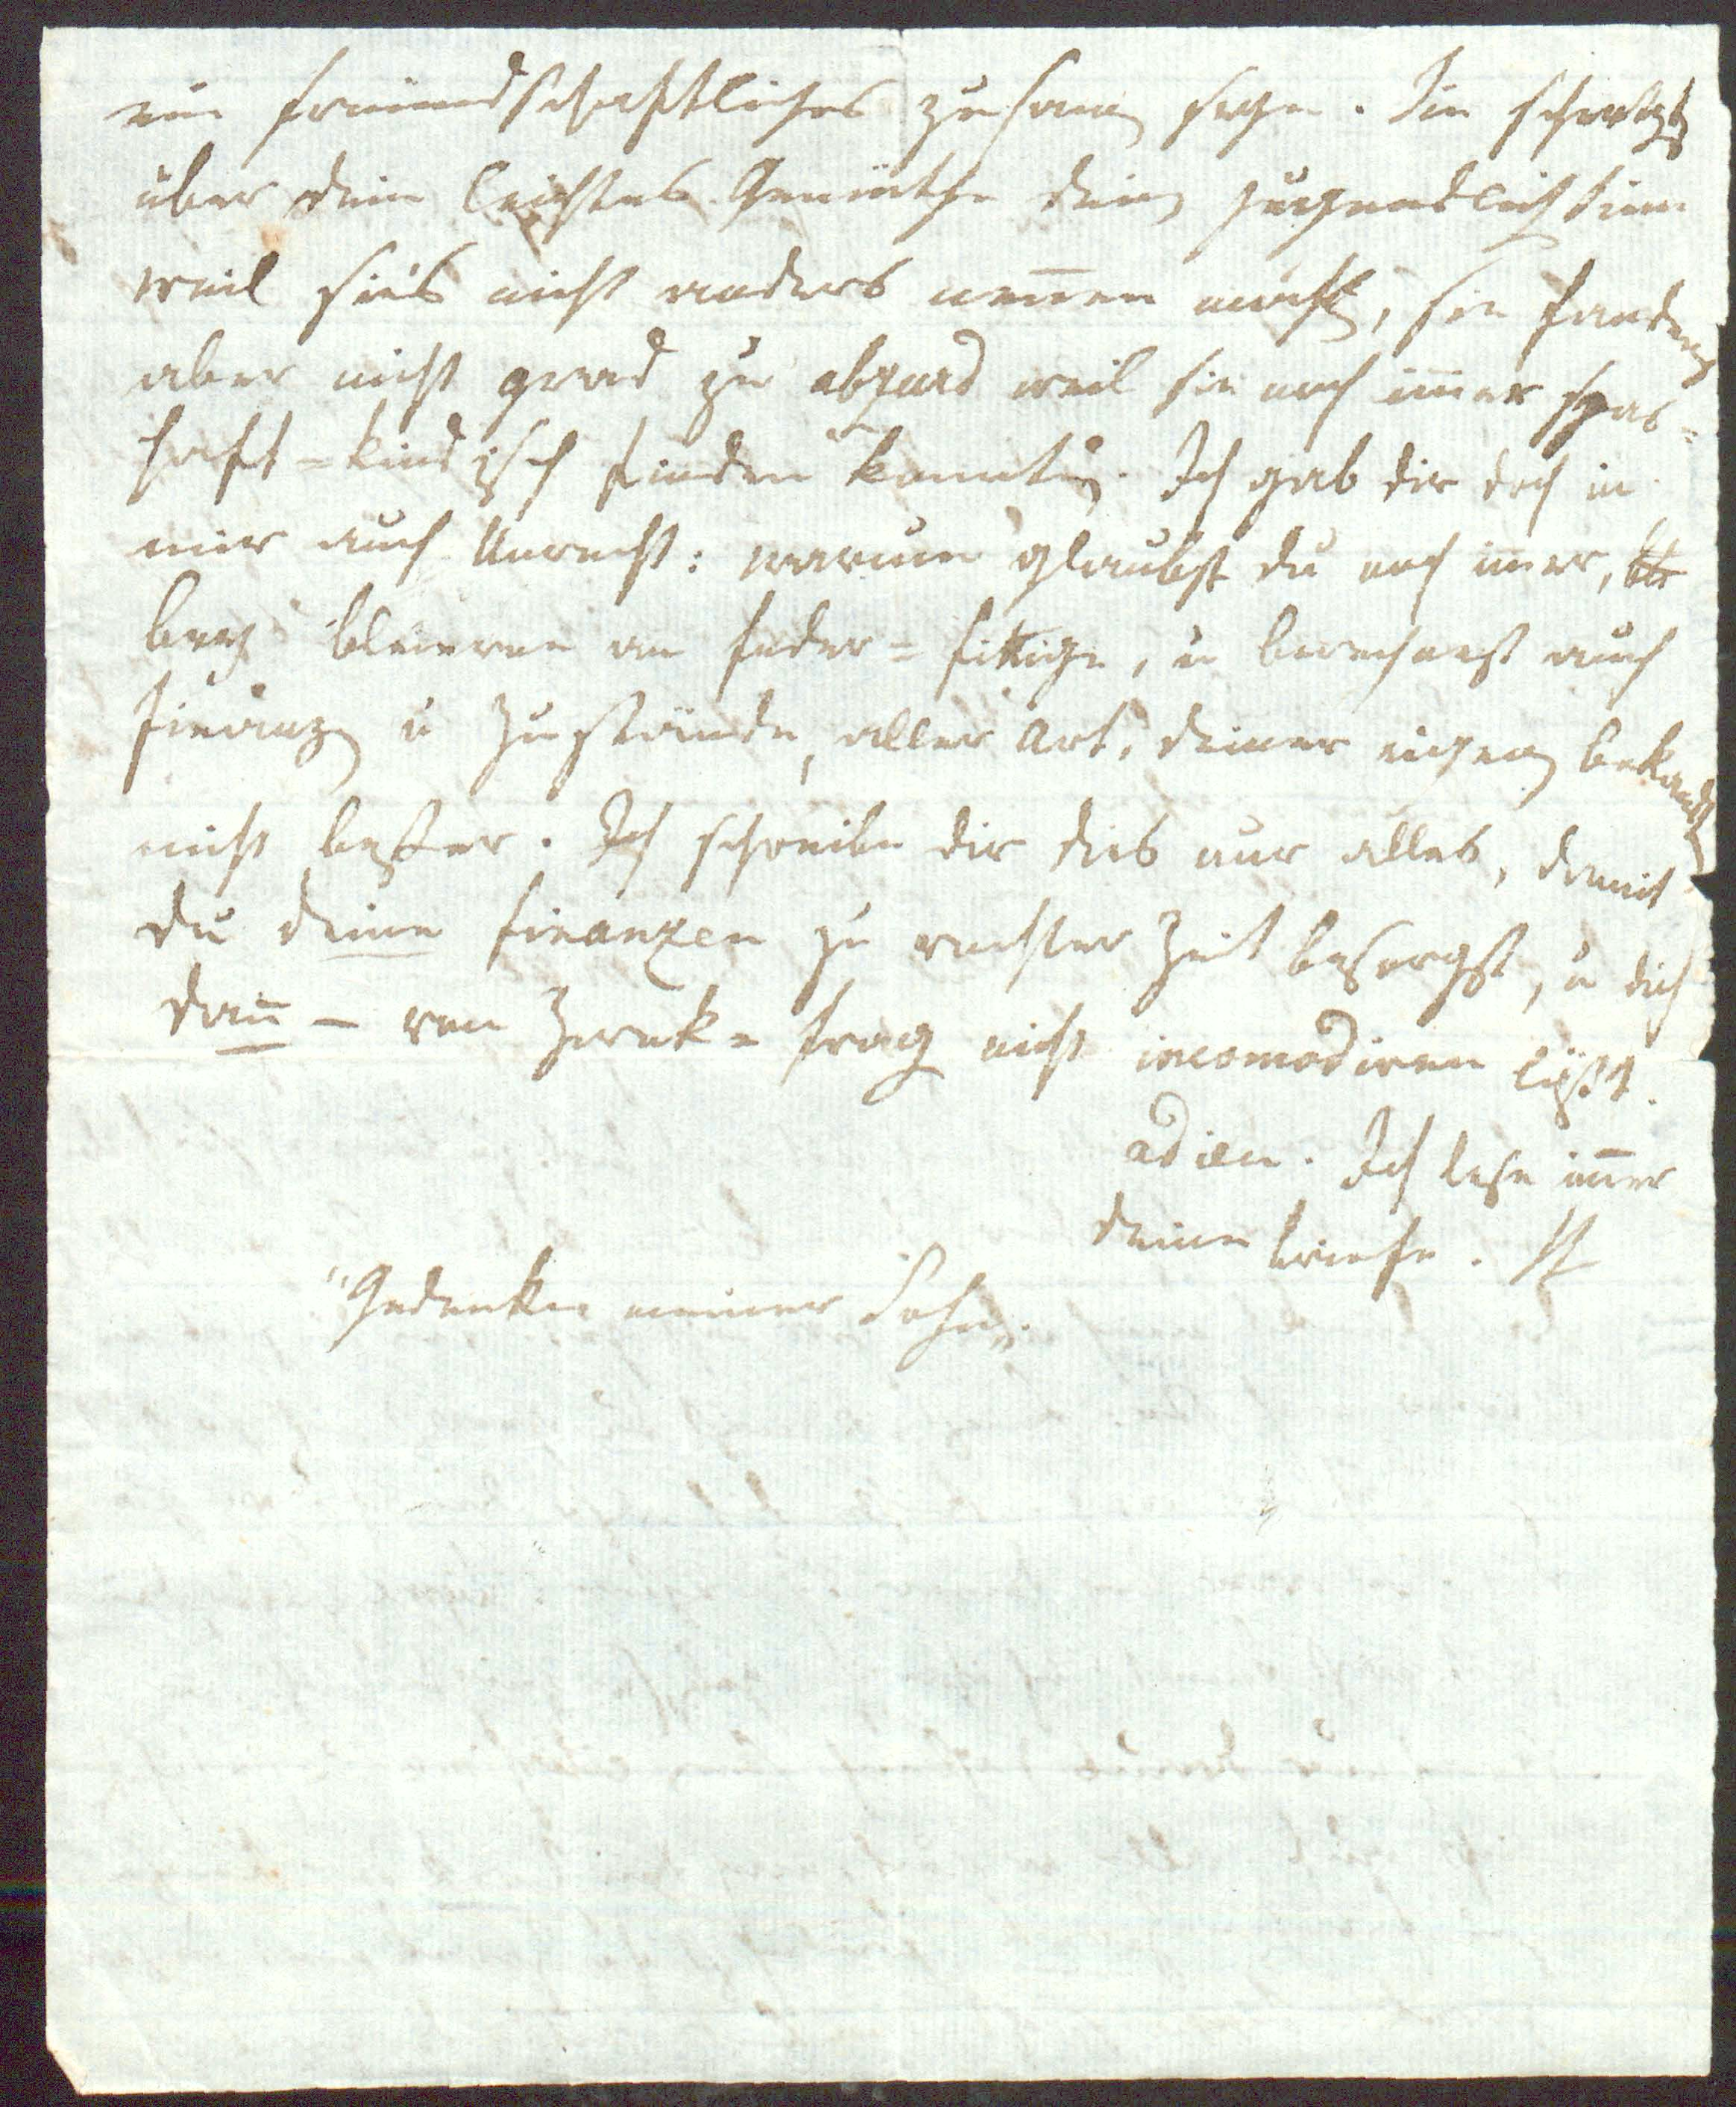 ein freündschaftliches zusam seyn. Sie scherzt
über dein leichtes Gemüthe dein jugendlich sinn
weil sie's nicht anders nennen mocht, sie fanden
aber nicht grad zu absurd weil sie noch im̄er spas=
haft=kindisch finden konnte. Ich gab dir doch in
mir auch Unrecht: warum glaubst du noch im̄er,
bey bleierne an feder=fittige, u berechnest auch
Finanz u Zustände, aller Art, deiner eigen bekandt
nicht beßer. Ich schreibe dir dies nur alles, damit
du deine finanzen zu rechter Zeit besorgst, u dich
dan̄ – von Zweck= frag nicht incomodiren läßt.
adieu. Ich lese im̄er
deine briefe.
"Gedenke meiner Sohn".